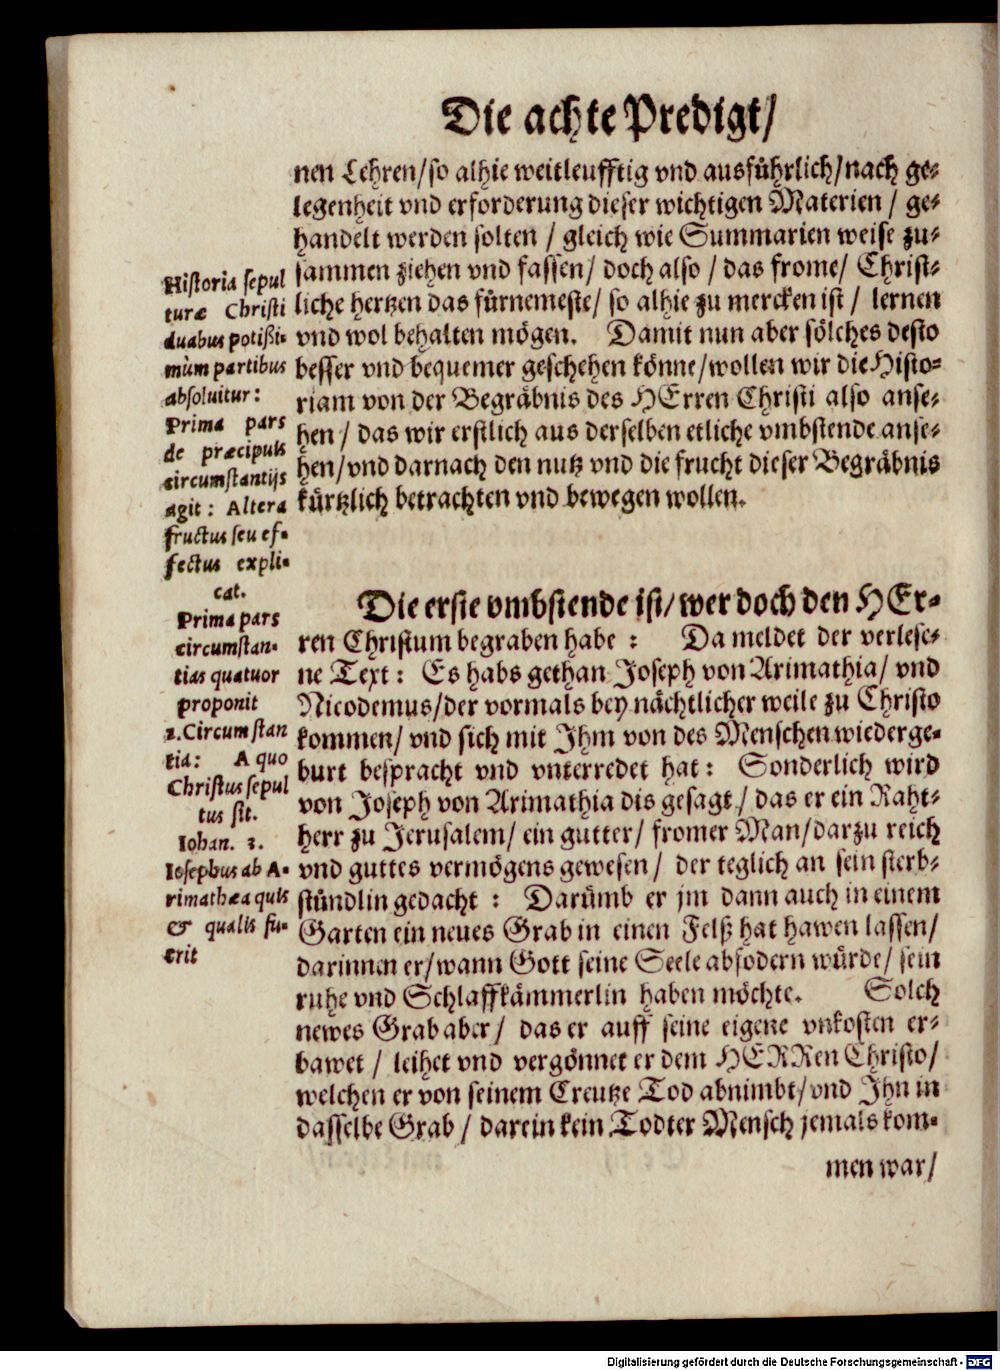 Die achte Predigt/
nen Lehren/so alhie weitleufftig vnd ausführlich/nach ge-
legenheit vnd erforderung dieser wichtigen Materien / ge-
handelt werden solten / gleich wie Summarien weise zu-
sammen ziehen vnd fassen/ doch also / das frome/ Christ-
liche hertzen das fürnemeste/ so alhie zu mercken ist / lernen
vnd wol behalten mögen. Damit nun aber sölches desto
besser vnd bequemer geschehen könne/wollen wir die Histo-
riam von der Begräbnis des HErren Christi also anse-
hen / das wir erstlich aus derselben etliche vmbstende anse-
hen/vnd darnach den nutz vnd die frucht dieser Begräbnis
kürtzlich betrachten vnd bewegen wollen.
Historia sepul
turæ Christi
duabus potißi-
mùm partibus
absoluitur:
Prima pars
de præcipuis
circumstantijs
agit: Altera
fructus seu ef-
fectus expli-
cat.
Die erste vmbstende ist/wer doch den HEr-
ren Christum begraben habe : Da meldet der verlese-
ne Text: Es habs gethan Joseph von Arimathia/ vnd
Nicodemus/der vormals bey nächtlicher weile zu Christo
kommen/ vnd sich mit Ihm von des Menschen wiederge-
burt bespracht vnd vnterredet hat: Sonderlich wird
von Joseph von Arimathia dis gesagt / das er ein Raht-
herr zu Jerusalem/ ein gutter/ fromer Man/darzu reich
vnd guttes vermögens gewesen/ der teglich an sein sterb-
stündlin gedacht : Darümb er jm dann auch in einem
Garten ein neues Grab in einen Felß hat hawen lassen/
darinnen er/wann Gott seine Seele absodern würde/ sein
ruhe vnd Schlaffkämmerlin haben möchte. Solch
newes Grab aber/ das er auff seine eigene vnkosten er-
bawet / leihet vnd vergönnet er dem HERRen Christo/
welchen er von seinem Creutze Tod abnimbt/vnd Ihn in
dasselbe Grab / darein kein Todter Mensch jemals kom-
men war/
Prima pars
circumstan-
tias quatuor
proponit
1. Circumstan
tia: A quo
Christus sepul
tus sit.
Iohan. 3.
Iosephus ab A-
rimathæa quis
& qualis fu-
erit
Digitalisierung gefördert durch die Deutsche Forschungsgemeinschaft - DFG